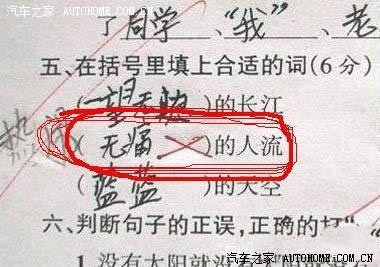 汽车之家 AUTOHOME.COM.CN
了同学、“我”、老
五、在括号里填上合适的词(6分)
(一望无
)的长江
(无痛)的人流
(蓝蓝)的天空
六、判断句子的正误,正确的打"
1.没有太阳就没有
汽车之家 AUTOHOME.COM.CN